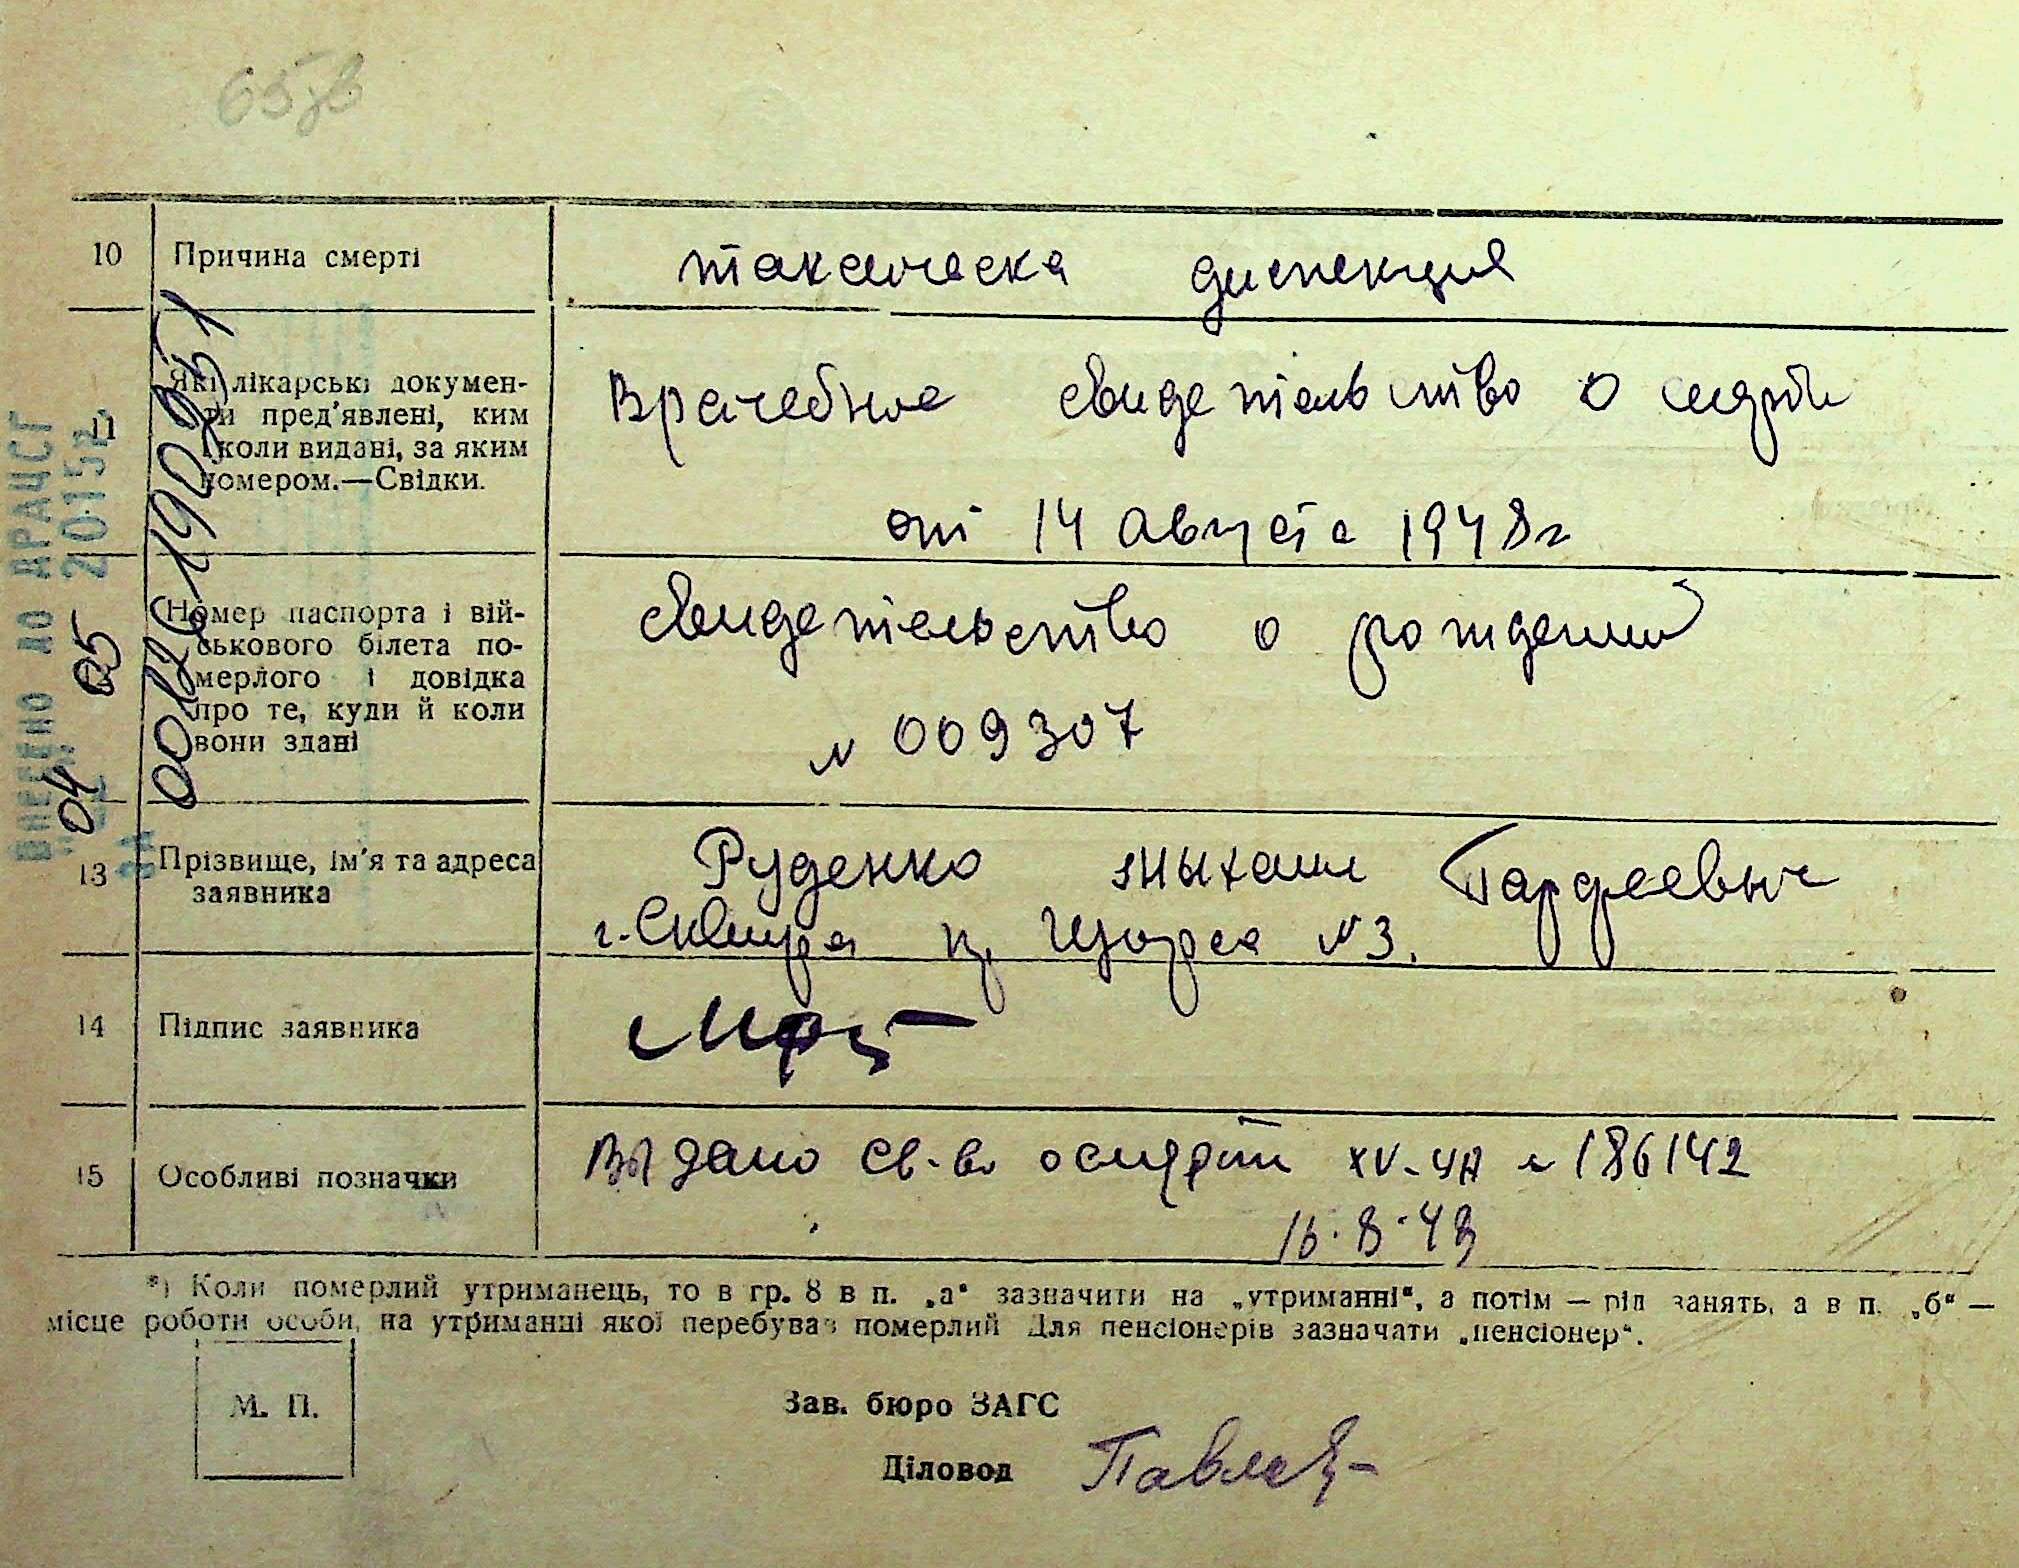 65зв
10 Причина смерті токсическа диспекция
11 Які лікарські докумен-
ти пред'явлені, ким
і коли видані, за яким
номером.—Свідки.
Врачебное свидетельство о смерти
от 14 августа 1948г
Номер паспорта і вій-
ськового білета по-
мерлого і довідка
про те, куди й коли
вони здані
свидетельство о рождении
N 009307
13 Прізвище, ім'я та адреса
заявника
Руденко Мыхаил Парфеевич
г. Сквира Щорса N3.
14 Підпис заявника
15 Особливі позначки
Выдано св-во о смерти XV-УА N 186142
16.8.48
*) Коли померлий утриманець, то в гр. 8 в п. „а“ зазначити на „утриманні“, а потім — рід занять, а в п. „б“ —
місце роботи особи, на утриманні якої перебував померлий Для пенсіонерів зазначати „пенсіонер“.
М. П.
Зав. бюро ЗАГС
Діловод
ВНЕСЕНО ДО ДРАЦСГ
04 05 2015р.
ЗА